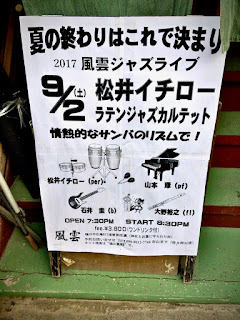 夏の終わりはこれで決まり
2017 風雲ジャズライブ
9/2(土) 松井イチロー
ラテンジャズカルテット
情熱的なサンバのリズムで!
松井イチロー(per)
山本 (pf)
石井 (b)
大野 (fl)
OPEN 7:30PM START 8:30PM
fee.¥3,800(ワンドリンク付)
風雲